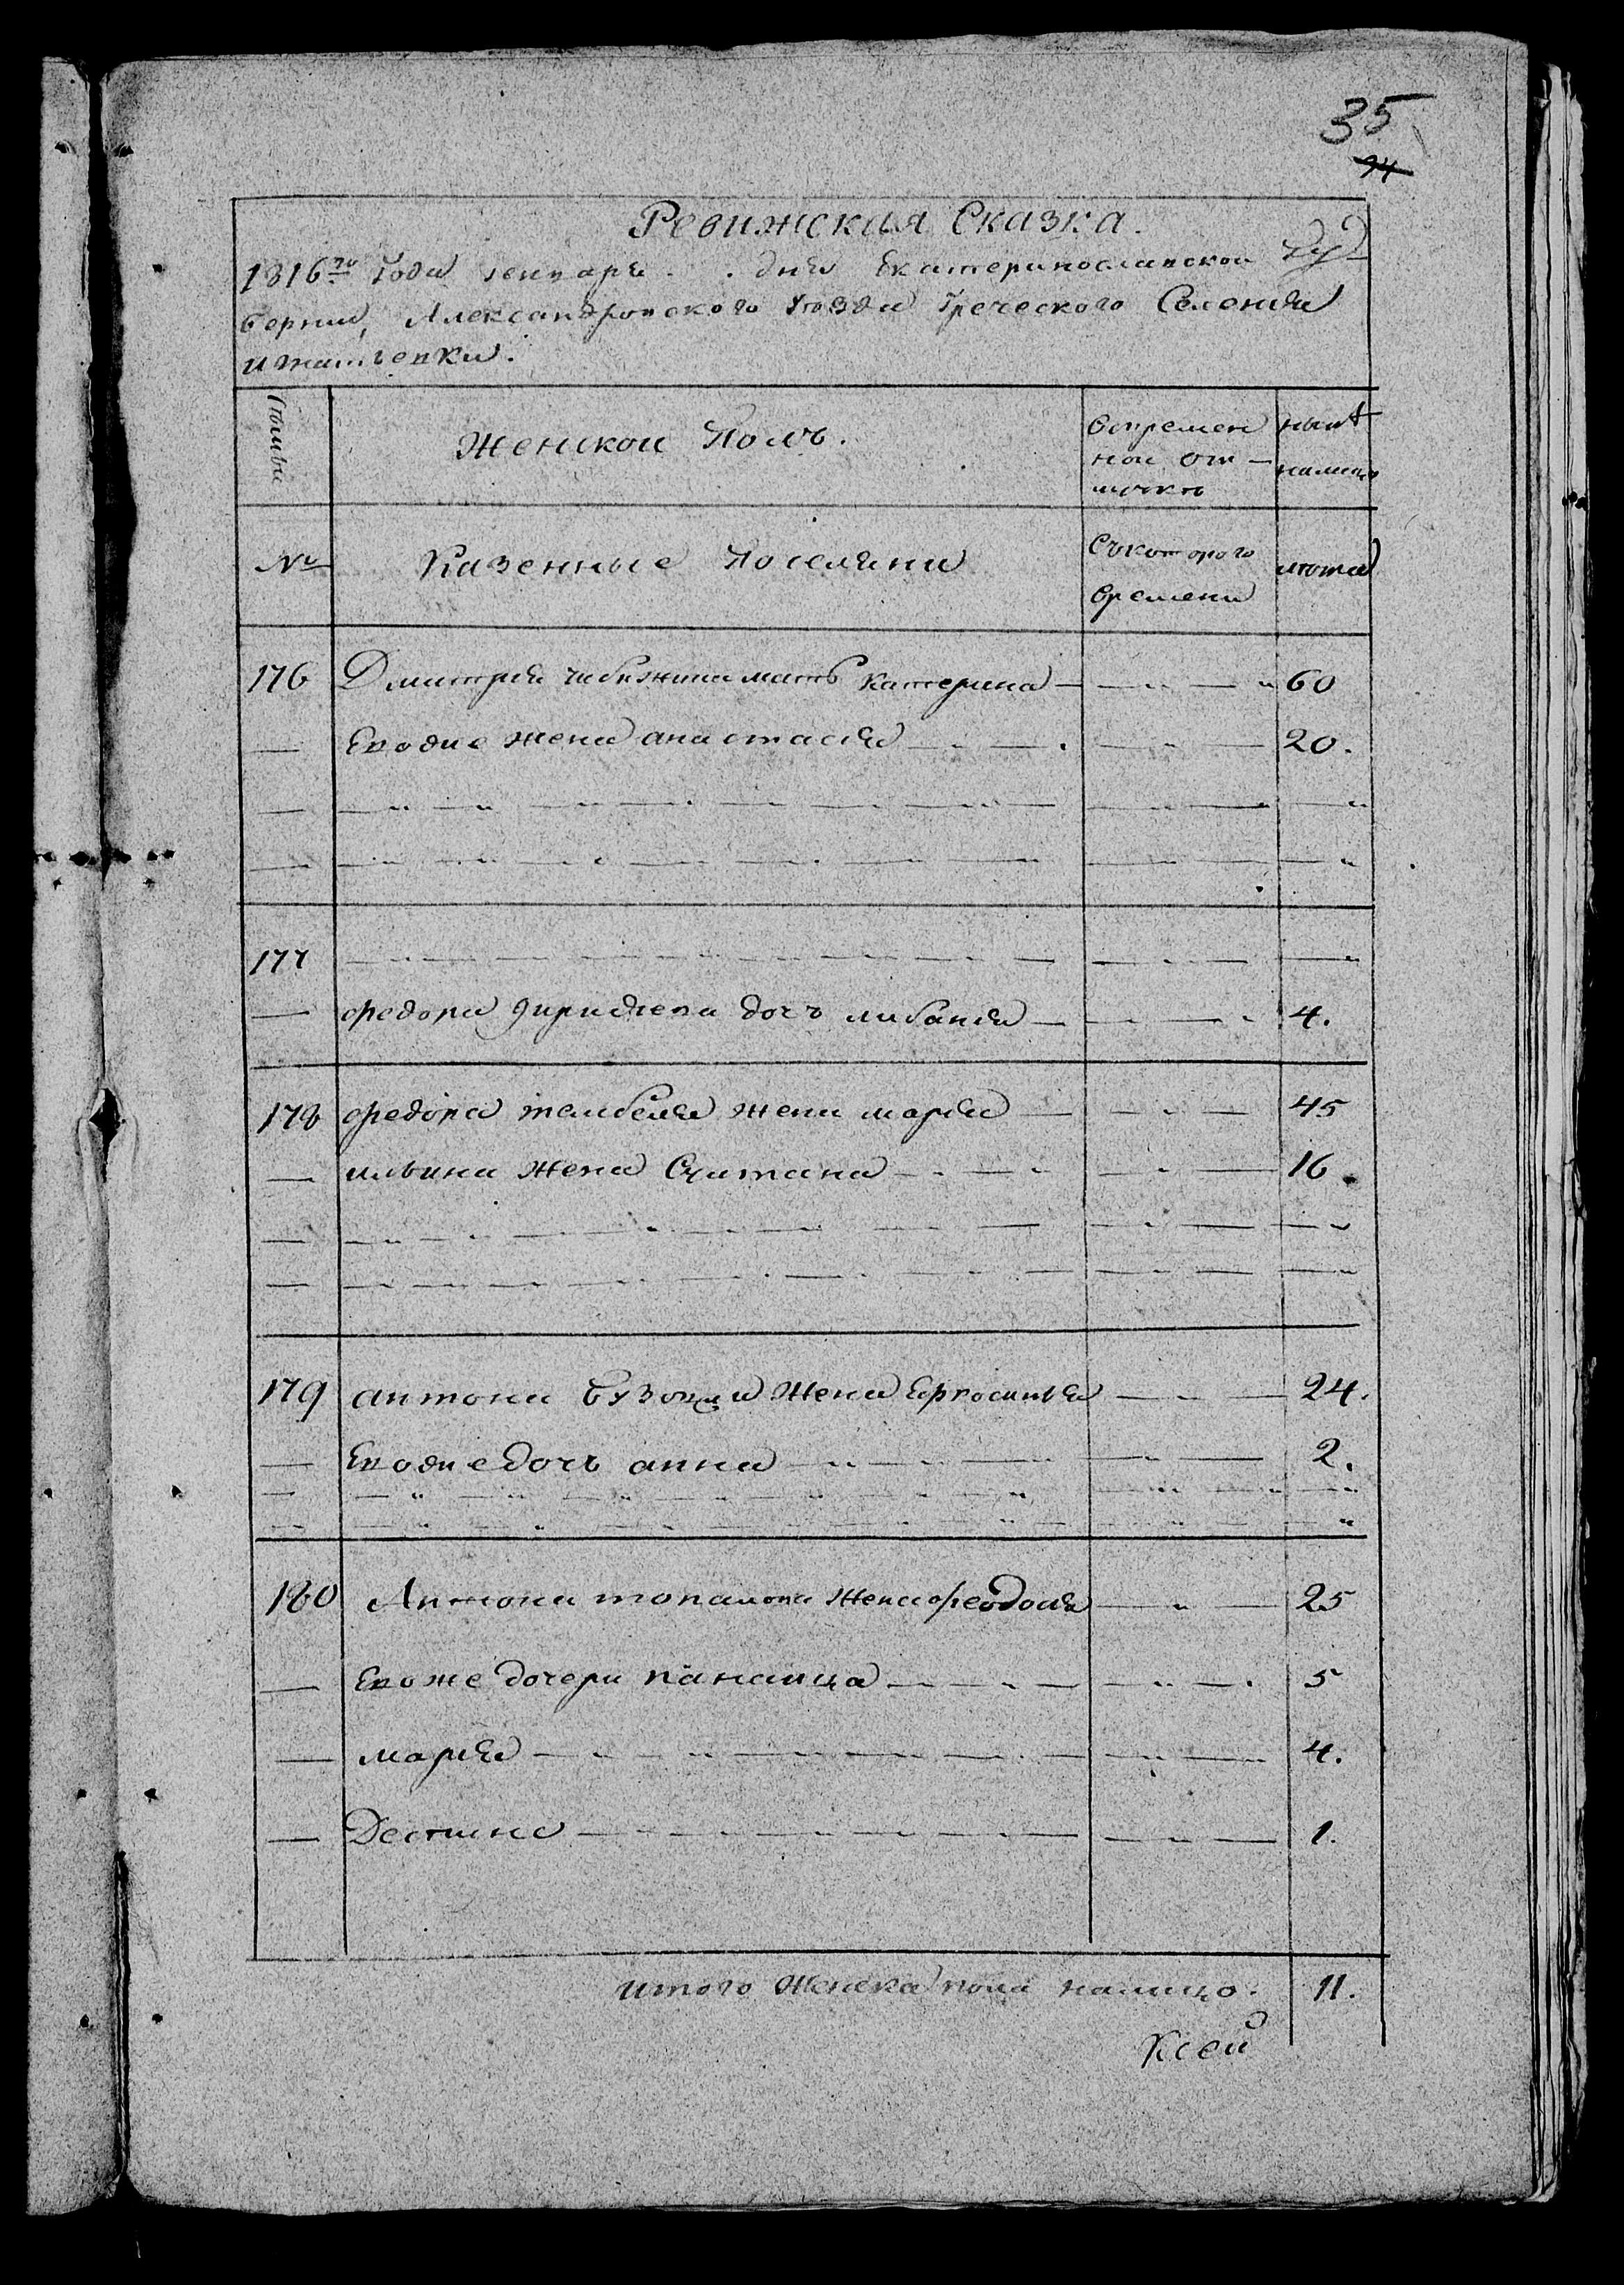 35
94
Ревижская Сказка.
1816го Года генваря . . дня Екатеринославской Гу-
бернии, Александровского Уѣзда Греческого Селения
Игнатьевки.
Семьи
Женской Полъ.
Вовремен
ной от-
лучкѣ
нынѣ
налицо
№
Казенные Поселяна
Съкоторого
времени
лѣта
176 Дмитрия мать Катерина — — 60
— Еводие жена анастасия — — 20.
177
— федора дочъ — — 4.
178 федора жена мария — — 45
— ильина жена Султана — — 16.
179 антона жена Ефросиния — — 24.
— Еводие дочь анна — — 2.
180 Антона топалова жена феодосия — — 25
— Евоже дочери панаица — — 5
— мария — — 4.
— Деспина — — 1.
Итого женска пола налицо. 11.
Ксей